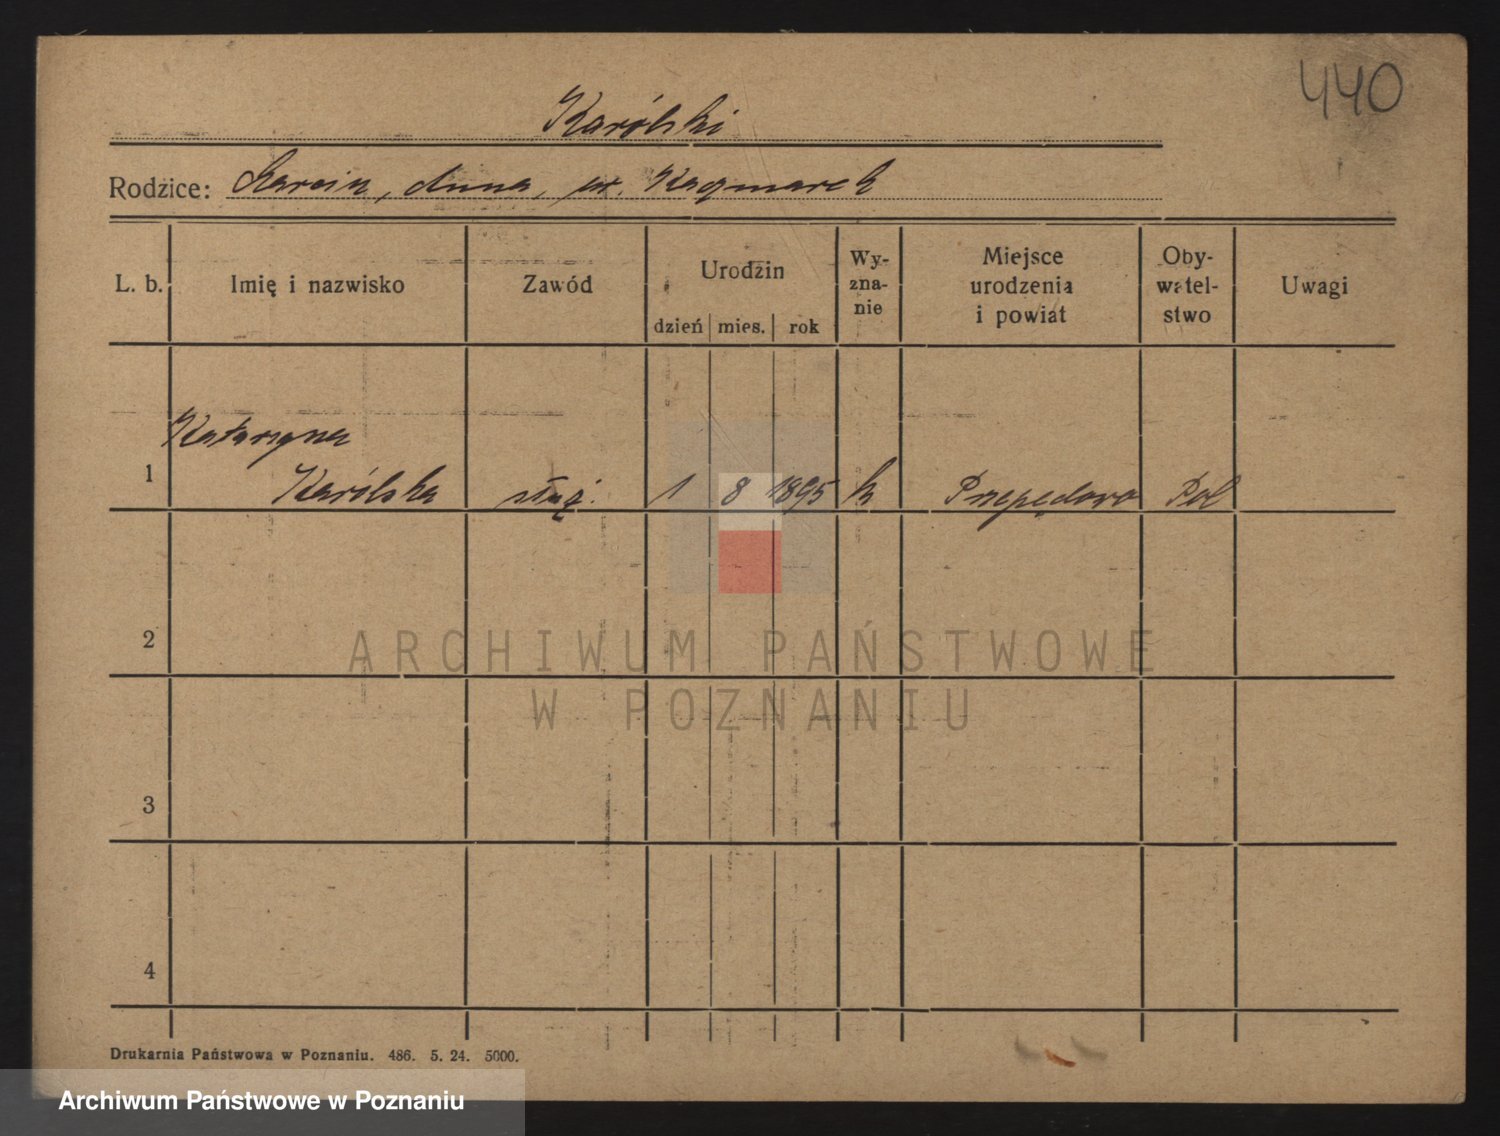 440
Karólski
Rodzice: Marcin, Anna, ur. Kaczmarek
L. b.
Imię i nazwisko
Zawód
Urodzin
dzień mies. rok
Wy-
zna-
nie
Miejsce
urodzenia
i powiat
Oby-
watel-
stwo
Uwagi
Katarzyna
1 Karólska służ. 1 8 1895 k Przepędowo Pol
2
3
4
ARCHIWUM PAŃSTWOWE
W POZNANIU
Drukarnia Państwowa w Poznaniu. 486. 5. 24. 5000.
Archiwum Państwowe w Poznaniu